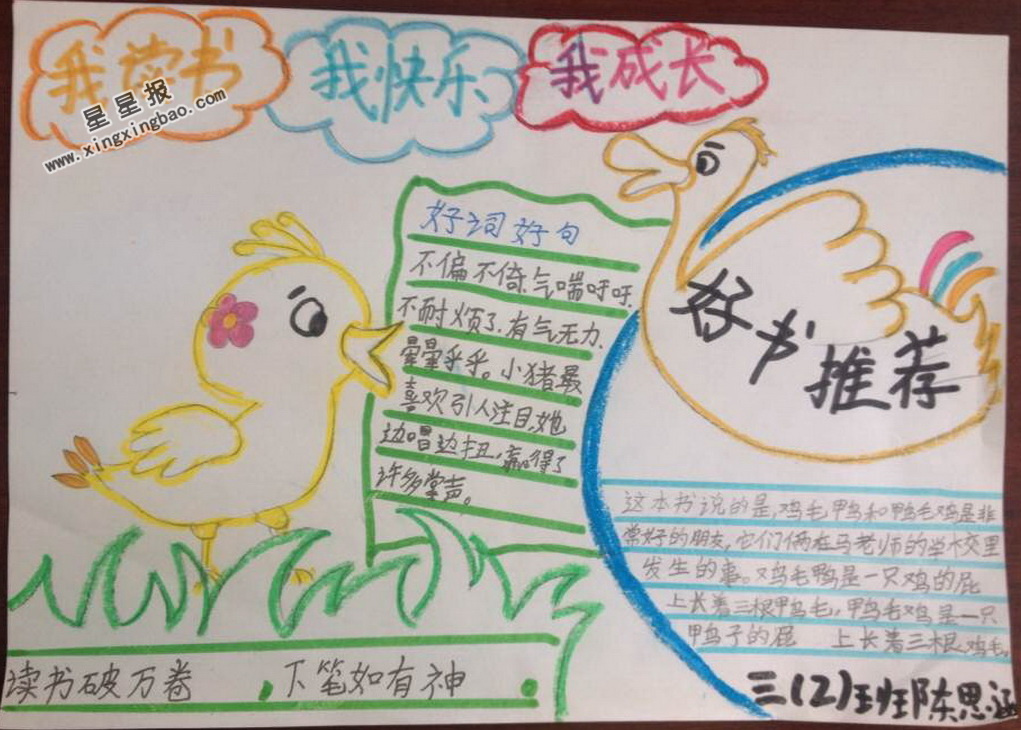 我读书
我快乐
我成长
星星报
www.xingxingbao.com
好词好句
不偏不倚.气喘吁吁.
不耐烦了.有气无力.
晕晕乎乎。小猪最
喜欢引人注目,她
边唱边扭,赢得了
许多掌声。
好书推荐
这本书说的是,鸡毛鸭和鸭毛鸡是非
常好的朋友,它们俩在马老师的学校里
发生的事。鸡毛鸭是一只鸡的屁
上长着三根鸭毛,鸭毛鸡是一只
鸭子的屁 上长着三根鸡毛。
读书破万卷,下笔如有神.
三(2)班陈思涵